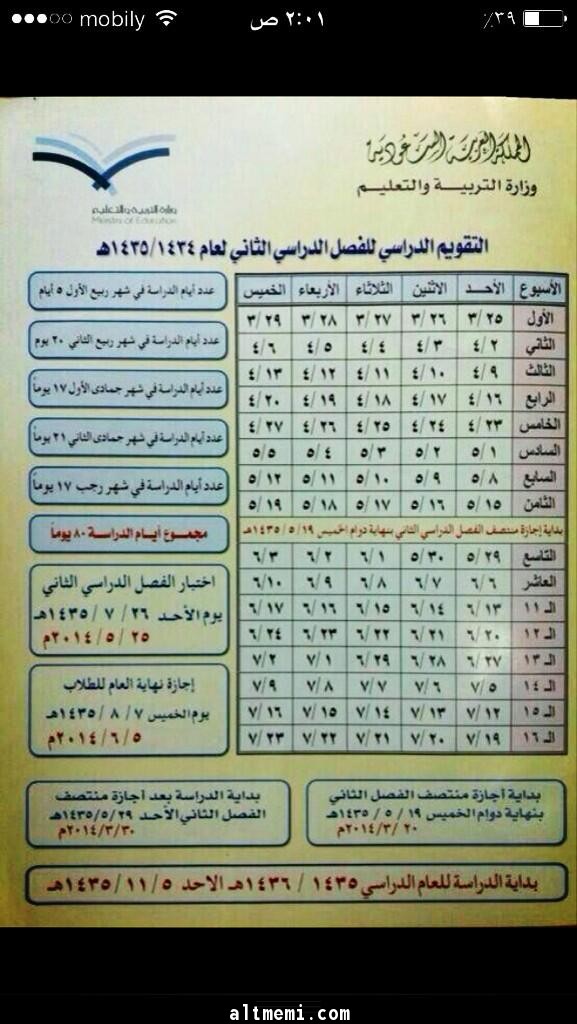 mobily ٢:٠١ ص ٪٣٩
المملكة العربية السعودية
وزارة التربية والتعليم
وزارة التربية والتعليم
Ministry of Education
التقويم الدراسي للفصل الدراسي الثاني لعام ١٤٣٥/١٤٣٤هـ
الأسبوع الأحد الاثنين الثلاثاء الأربعاء الخميس
الأول ٣/٢٥ ٣/٢٦ ٣/٢٧ ٣/٢٨ ٣/٢٩
الثاني ٤/٢ ٤/٣ ٤/٤ ٤/٥ ٤/٦
الثالث ٤/٩ ٤/١٠ ٤/١١ ٤/١٢ ٤/١٣
الرابع ٤/١٦ ٤/١٧ ٤/١٨ ٤/١٩ ٤/٢٠
الخامس ٤/٢٣ ٤/٢٤ ٤/٢٥ ٤/٢٦ ٤/٢٧
السادس ٥/١ ٥/٢ ٥/٣ ٥/٤ ٥/٥
السابع ٥/٨ ٥/٩ ٥/١٠ ٥/١١ ٥/١٢
الثامن ٥/١٥ ٥/١٦ ٥/١٧ ٥/١٨ ٥/١٩
بداية إجازة منتصف الفصل الدراسي الثاني بنهاية دوام الخميس ١٤٣٥/٥/١٩هـ
التاسع ٥/٢٩ ٥/٣٠ ٦/١ ٦/٢ ٦/٣
العاشر ٦/٦ ٦/٧ ٦/٨ ٦/٩ ٦/١٠
الـ ١١ ٦/١٣ ٦/١٤ ٦/١٥ ٦/١٦ ٦/١٧
الـ ١٢ ٦/٢٠ ٦/٢١ ٦/٢٢ ٦/٢٣ ٦/٢٤
الـ ١٣ ٦/٢٧ ٦/٢٨ ٦/٢٩ ٧/١ ٧/٢
الـ ١٤ ٧/٥ ٧/٦ ٧/٧ ٧/٨ ٧/٩
الـ ١٥ ٧/١٢ ٧/١٣ ٧/١٤ ٧/١٥ ٧/١٦
الـ ١٦ ٧/١٩ ٧/٢٠ ٧/٢١ ٧/٢٢ ٧/٢٣
عدد أيام الدراسة في شهر ربيع الأول ٥ أيام
عدد أيام الدراسة في شهر ربيع الثاني ٢٠ يوم
عدد أيام الدراسة في شهر جمادى الأول ١٧ يوماً
عدد أيام الدراسة في شهر جمادى الثاني ٢١ يوماً
عدد أيام الدراسة في شهر رجب ١٧ يوماً
مجموع أيام الدراسة ٨٠ يوماً
اختبار الفصل الدراسي الثاني
يوم الأحد ٢٦ / ٧ / ١٤٣٥هـ
٢٥ / ٥ / ٢٠١٤م
إجازة نهاية العام للطلاب
يوم الخميس ٧ / ٨ / ١٤٣٥هـ
٢٠١٤/٦/٥م
بداية أجازة منتصف الفصل الثاني
بنهاية دوام الخميس ١٩ / ٥ / ١٤٣٥هـ
٢٠ /٢٠١٤/٣م
بداية الدراسة بعد أجازة منتصف
الفصل الثاني الأحد ١٤٣٥/٥/٢٩هـ
٢٠١٤/٣/٣٠م
بداية الدراسة للعام الدراسي ١٤٣٥ / ١٤٣٦هـ الاحد ١٤٣٥/١١/٥هـ
altmemi.com